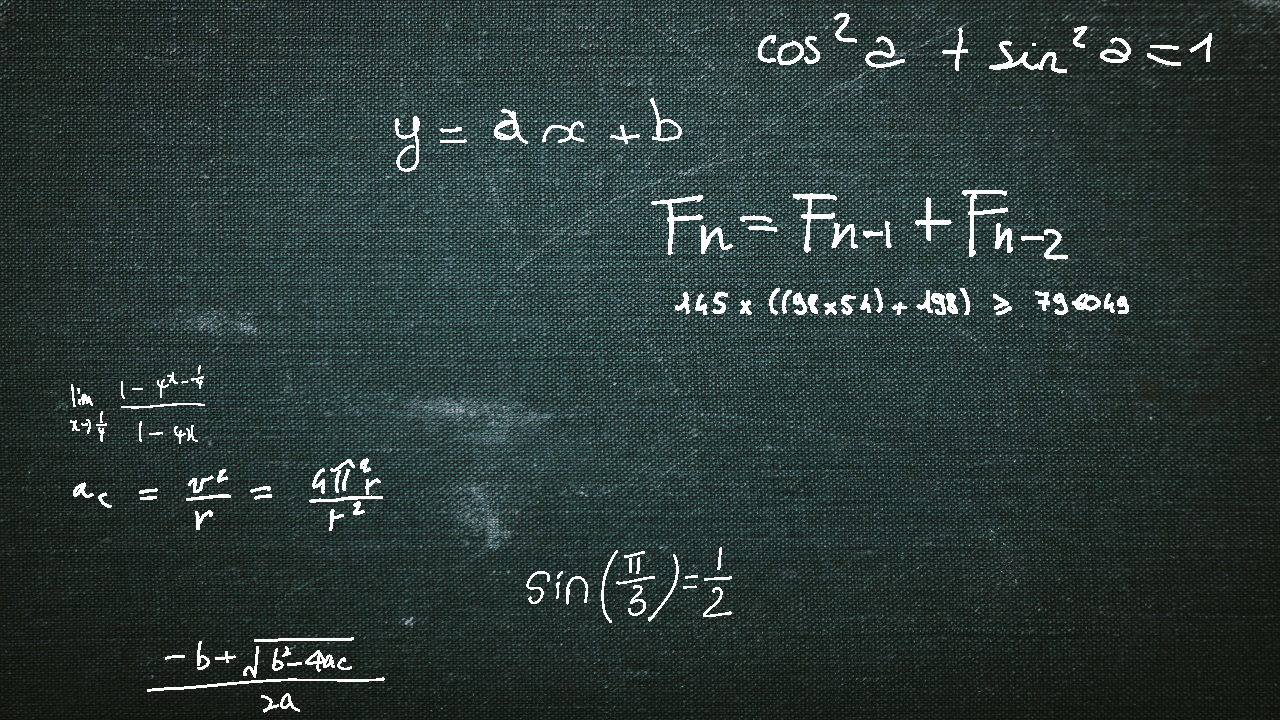 cos² a + sin² a = 1
y = ax + b
Fₙ = Fₙ₋₁ + Fₙ₋₂
145 × ((98×51) + 198) ≥
lim x→1/4 (1 - 4^(x - 1/4))/(1 - 4x)
a_c = v²/r = 4π²r/r²
sin(π/3) = 1/2
(-b + √(b² - 4ac))/2a